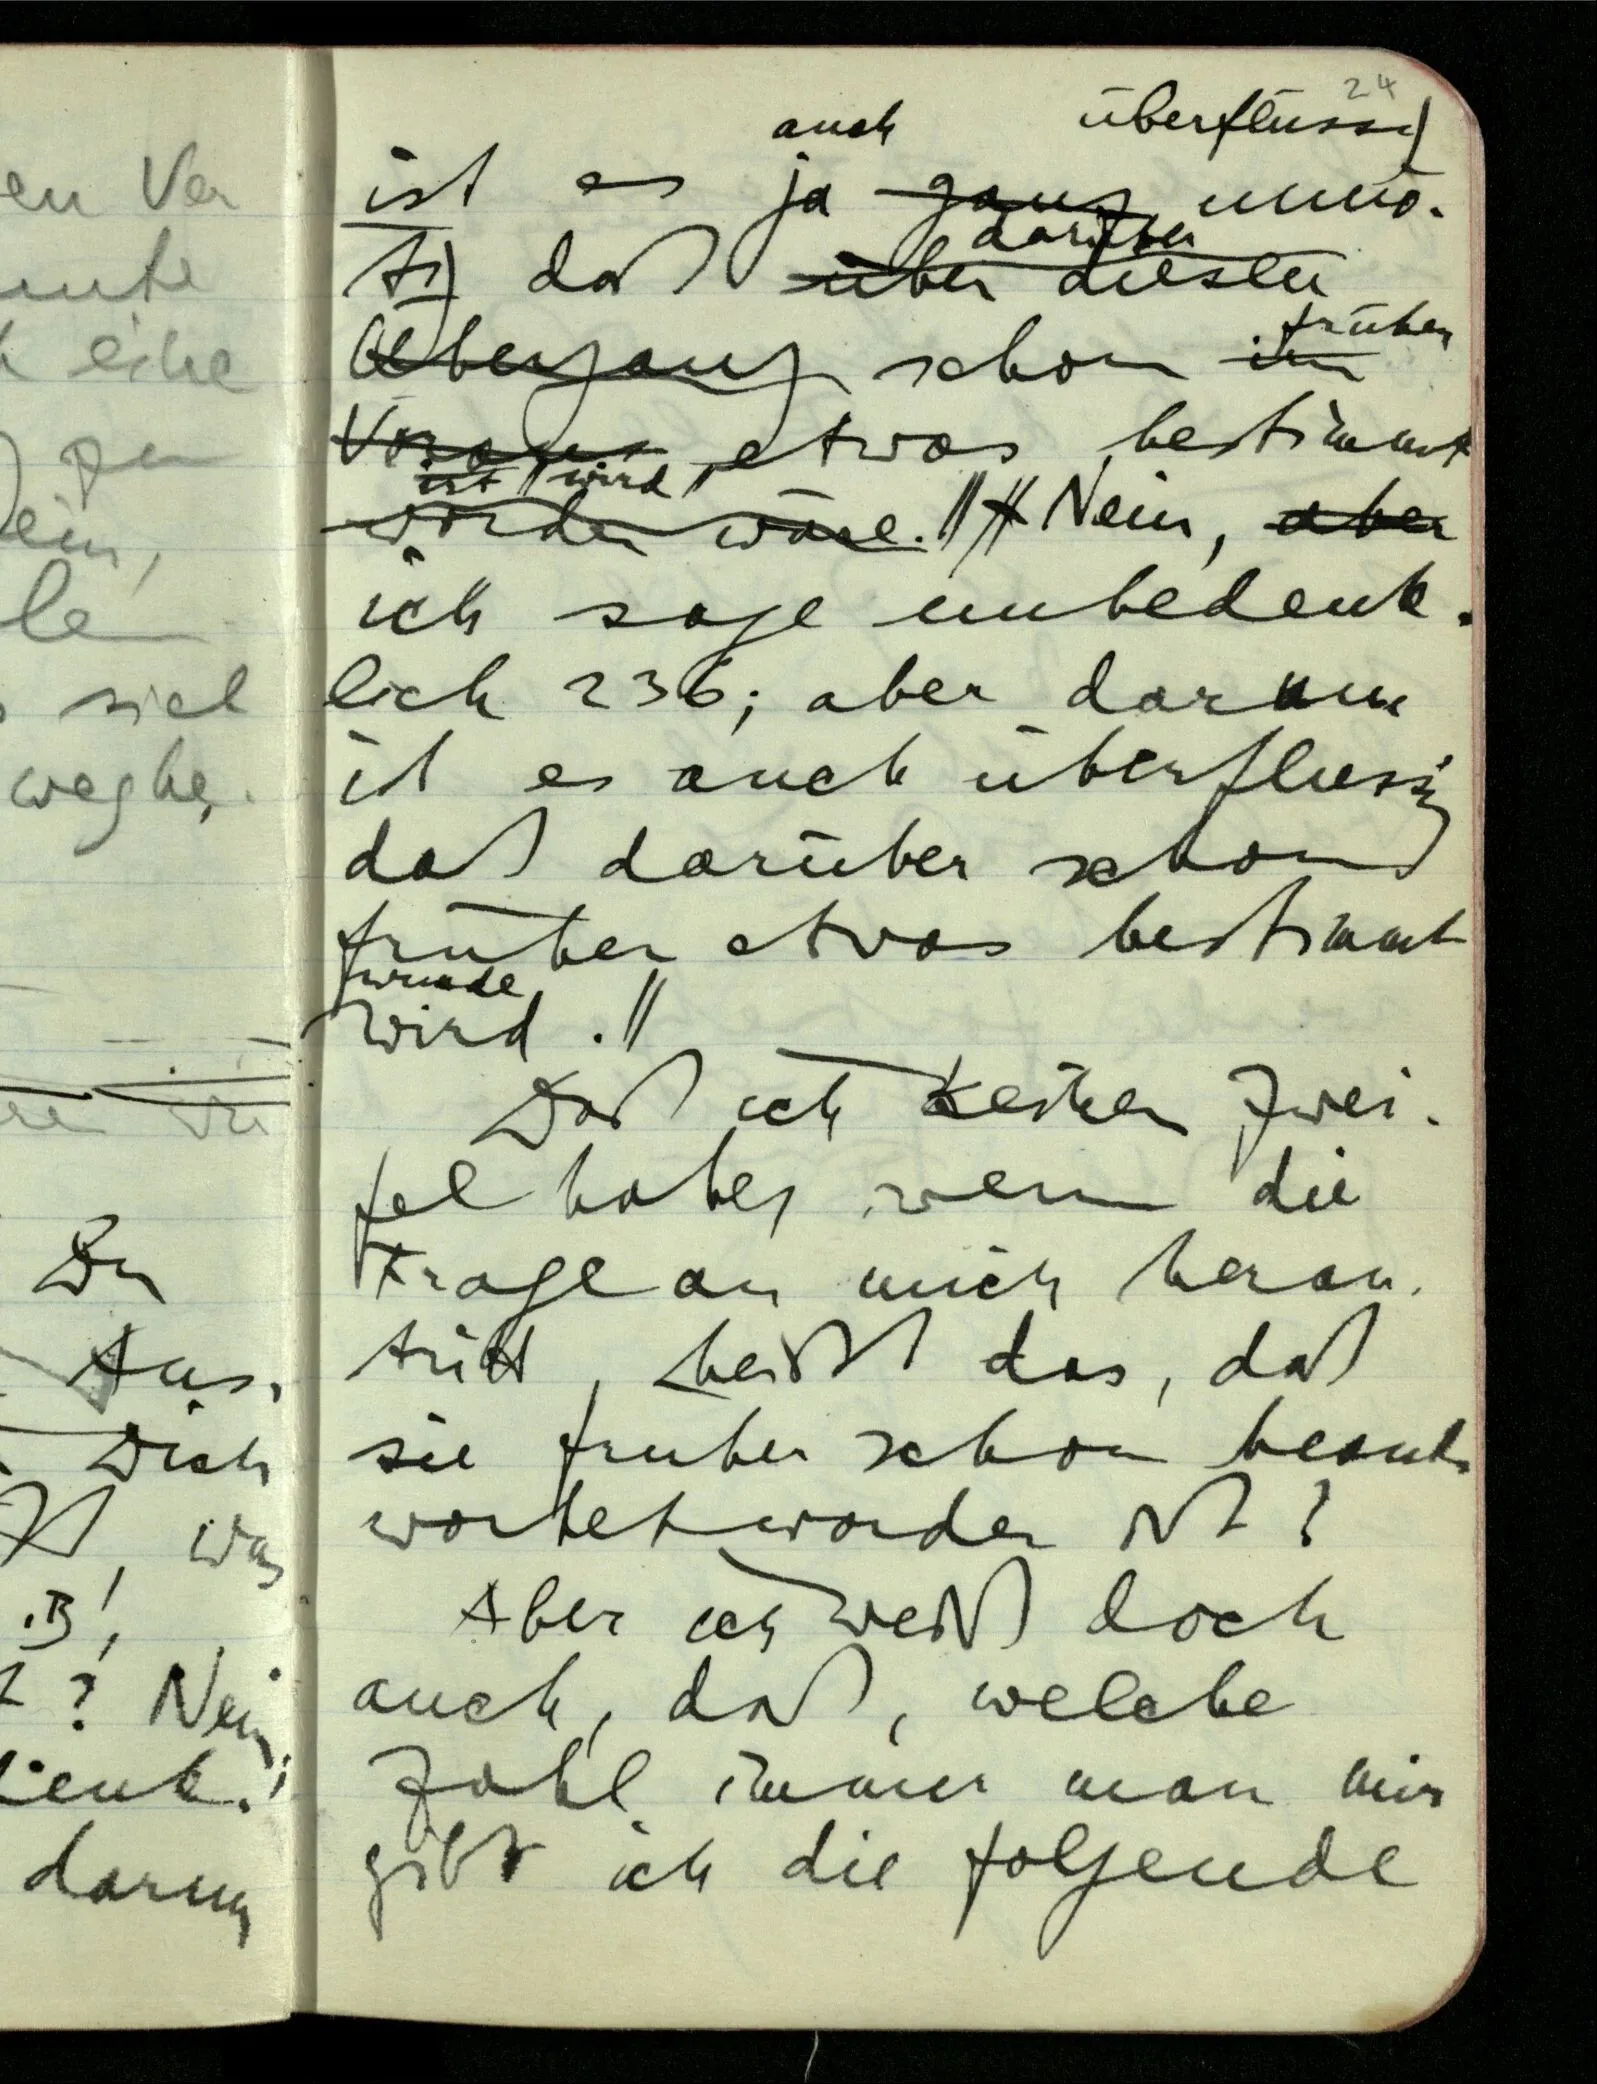 en Ver
eine
zu
sich
Du
Aus-
Dich
was
B!,
? Nein,
darum
24
auch überflüssig
ist es ja ganz unnö-
tig daß über diesen
darüber
Übergang schon im
früher
Voraus etwas bestimmt
ist // wird //
worden wäre. // // Nein, aber
ich sage unbedenk-
lich 236; aber darum
ist es auch überflüssig
daß darüber schon
früher etwas bestimmt
wurde
wird . //
Daß ich keinen Zwei-
fel habe, wenn die
Frage an mich heran-
tritt, heißt das, daß
sie früher schon beant-
wortet worden ist?
Aber ich weiß doch
auch, daß, welche
Zahl immer man mir
gibt ich die folgende